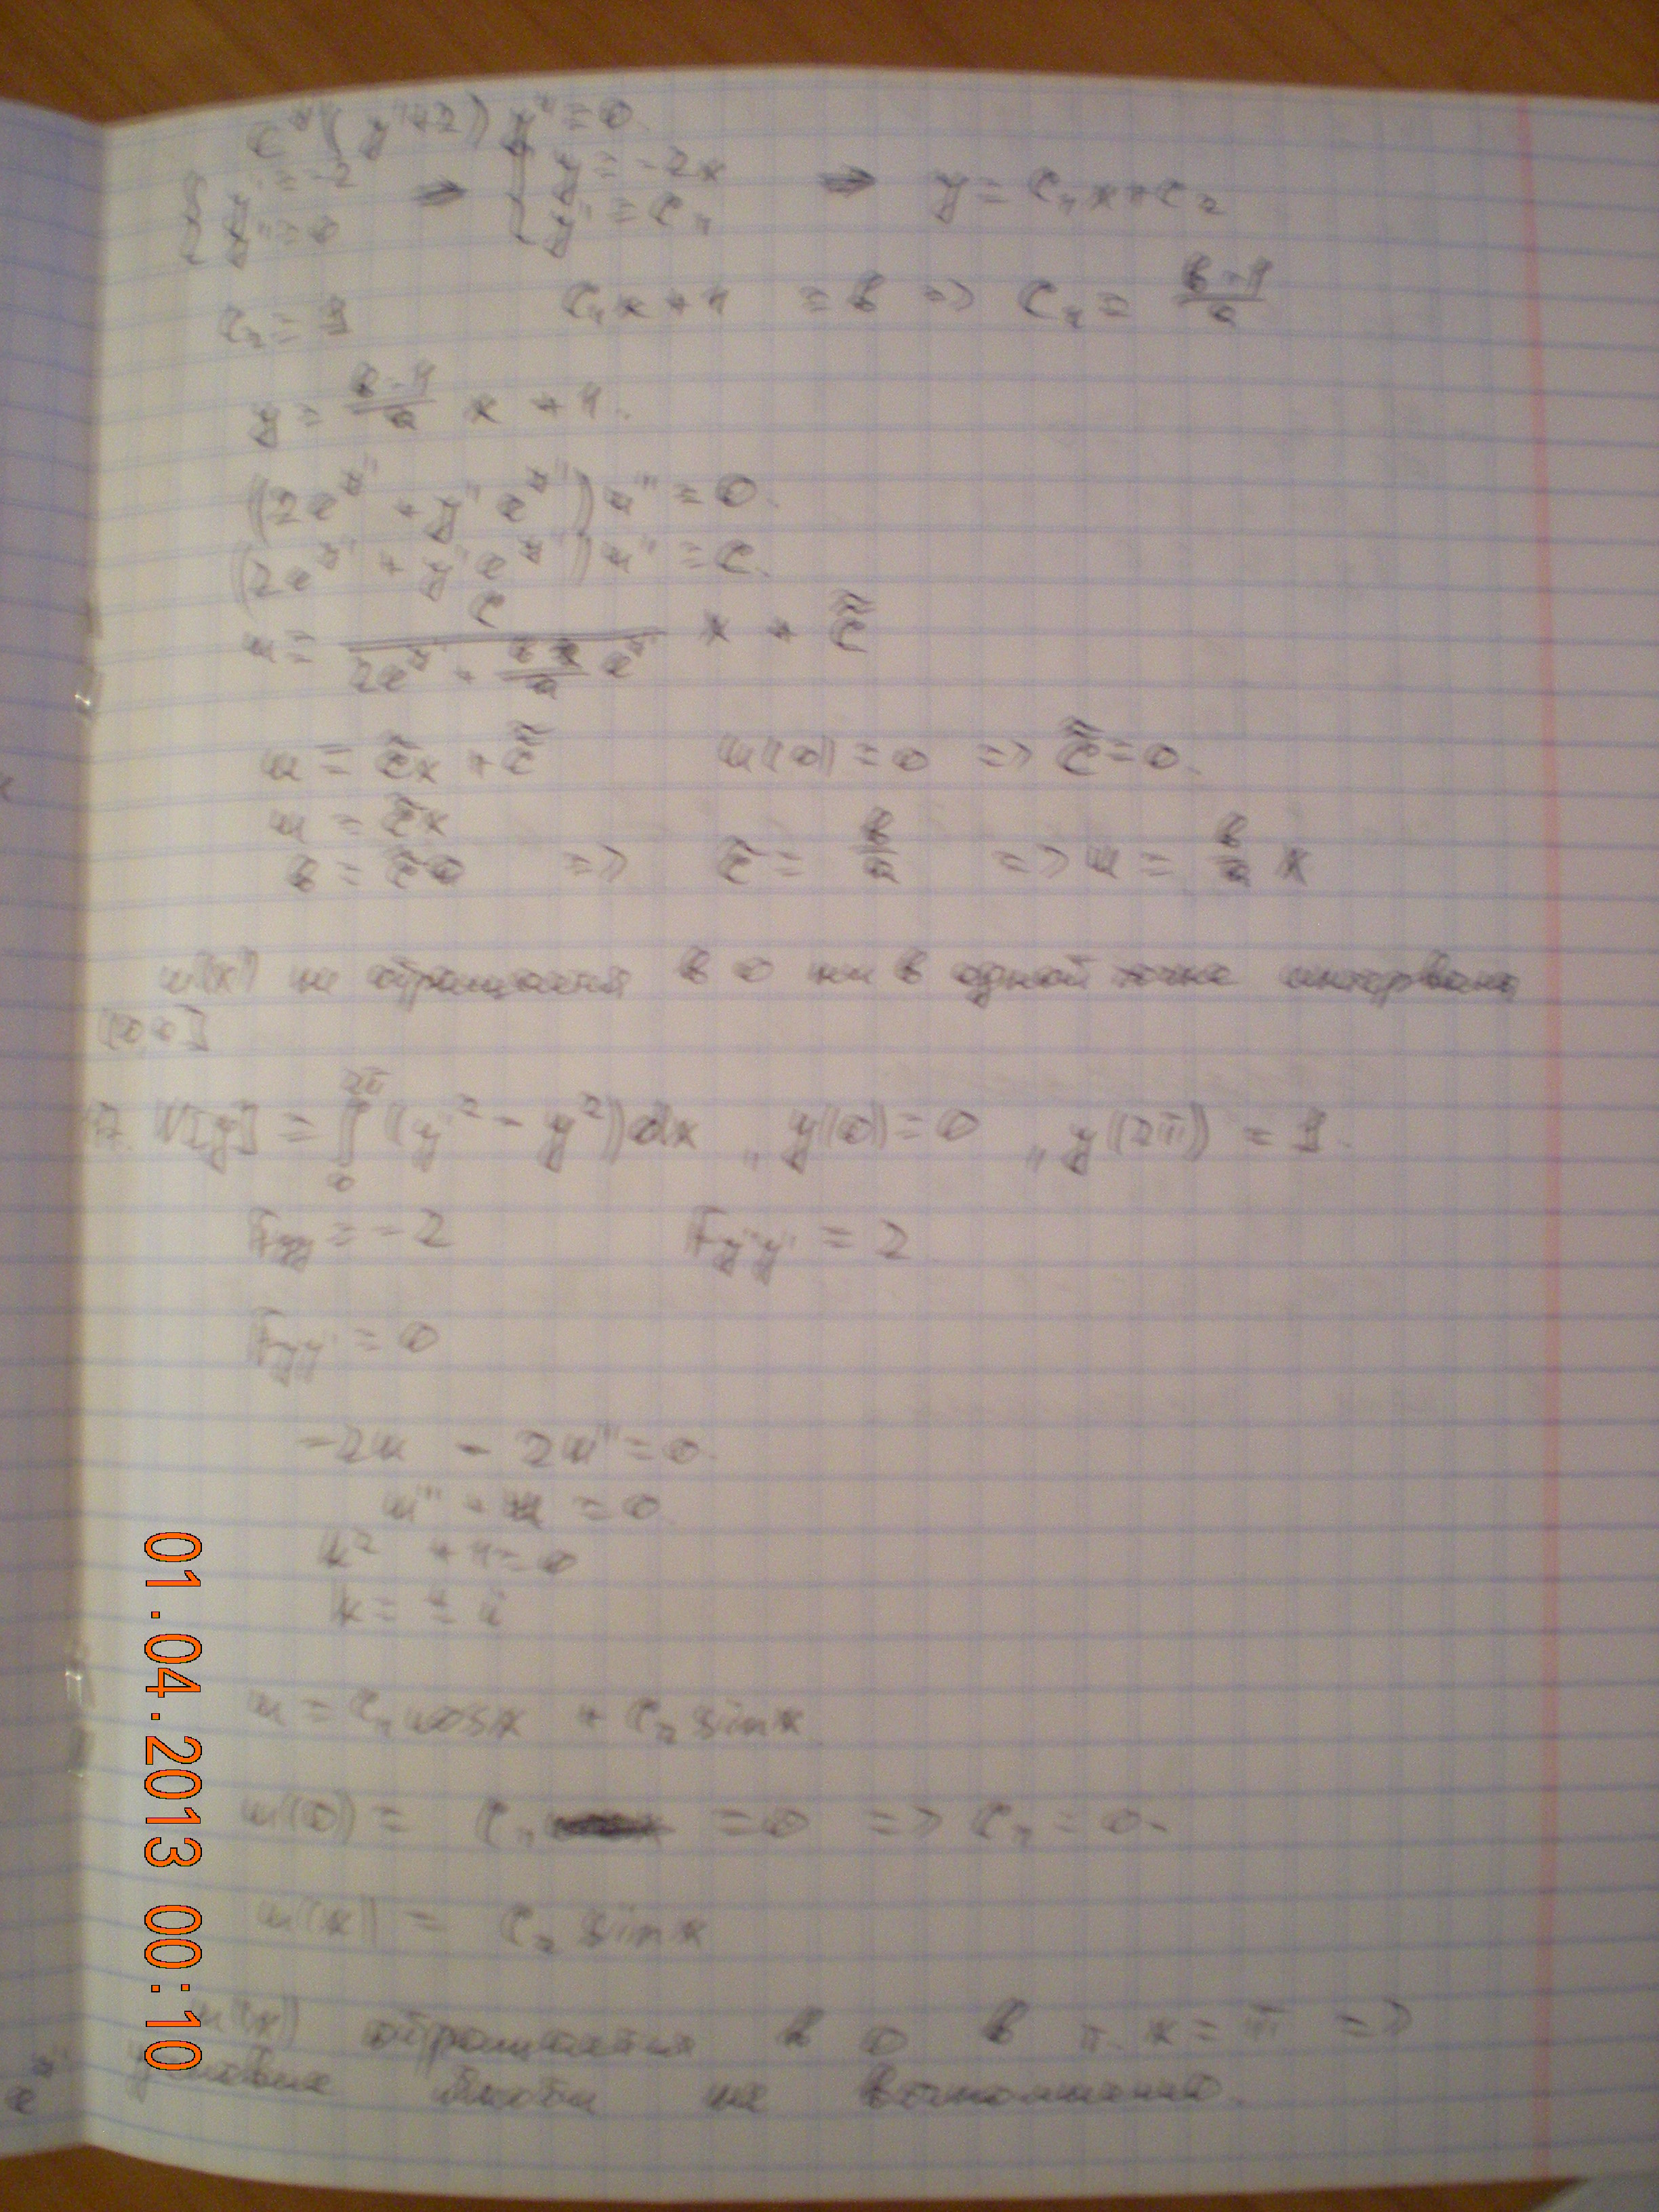 e^{y'}(y'+2)y''=0.
{ y'=-2 ⇒ { y=-2x ⇒ y=C₁x+C₂
{ y''=0 { y'=C₁
C₂=1 C₁x+1 =b => C₁= (b-1)/a
y= (b-1)/a x +1.
(2e^{y'}+y'e^{y'})u''=0.
(2e^{y'}+y'e^{y'})u'=C.
u= C/(2e^{y'}+ e^{y'}) x + C̃̃
u = C̃x + C̃̃ u(0)=0 => C̃̃=0.
u = C̃x
b = C̃a => C̃= b/a => u= b/a x
u(x) не обращается в 0 ни в одной точке интервала
(0,a]
17. V[y] = ∫₀^{2π} (y'² - y²)dx , y(0)=0 , y(2π) = 1.
F_{yy}=-2 F_{y'y'} = 2
F_{yy'} = 0
-2u - 2u''=0.
u''+u =0.
k² +1=0
k= ± i
u = C₁cosx + C₂sinx
u(0)= C₁ =0 => C₁=0.
u(x) = C₂ sinx
u(x) обращается в 0 в т. x=π =>
условие Якоби не выполнено.
01.04.2013 00:10